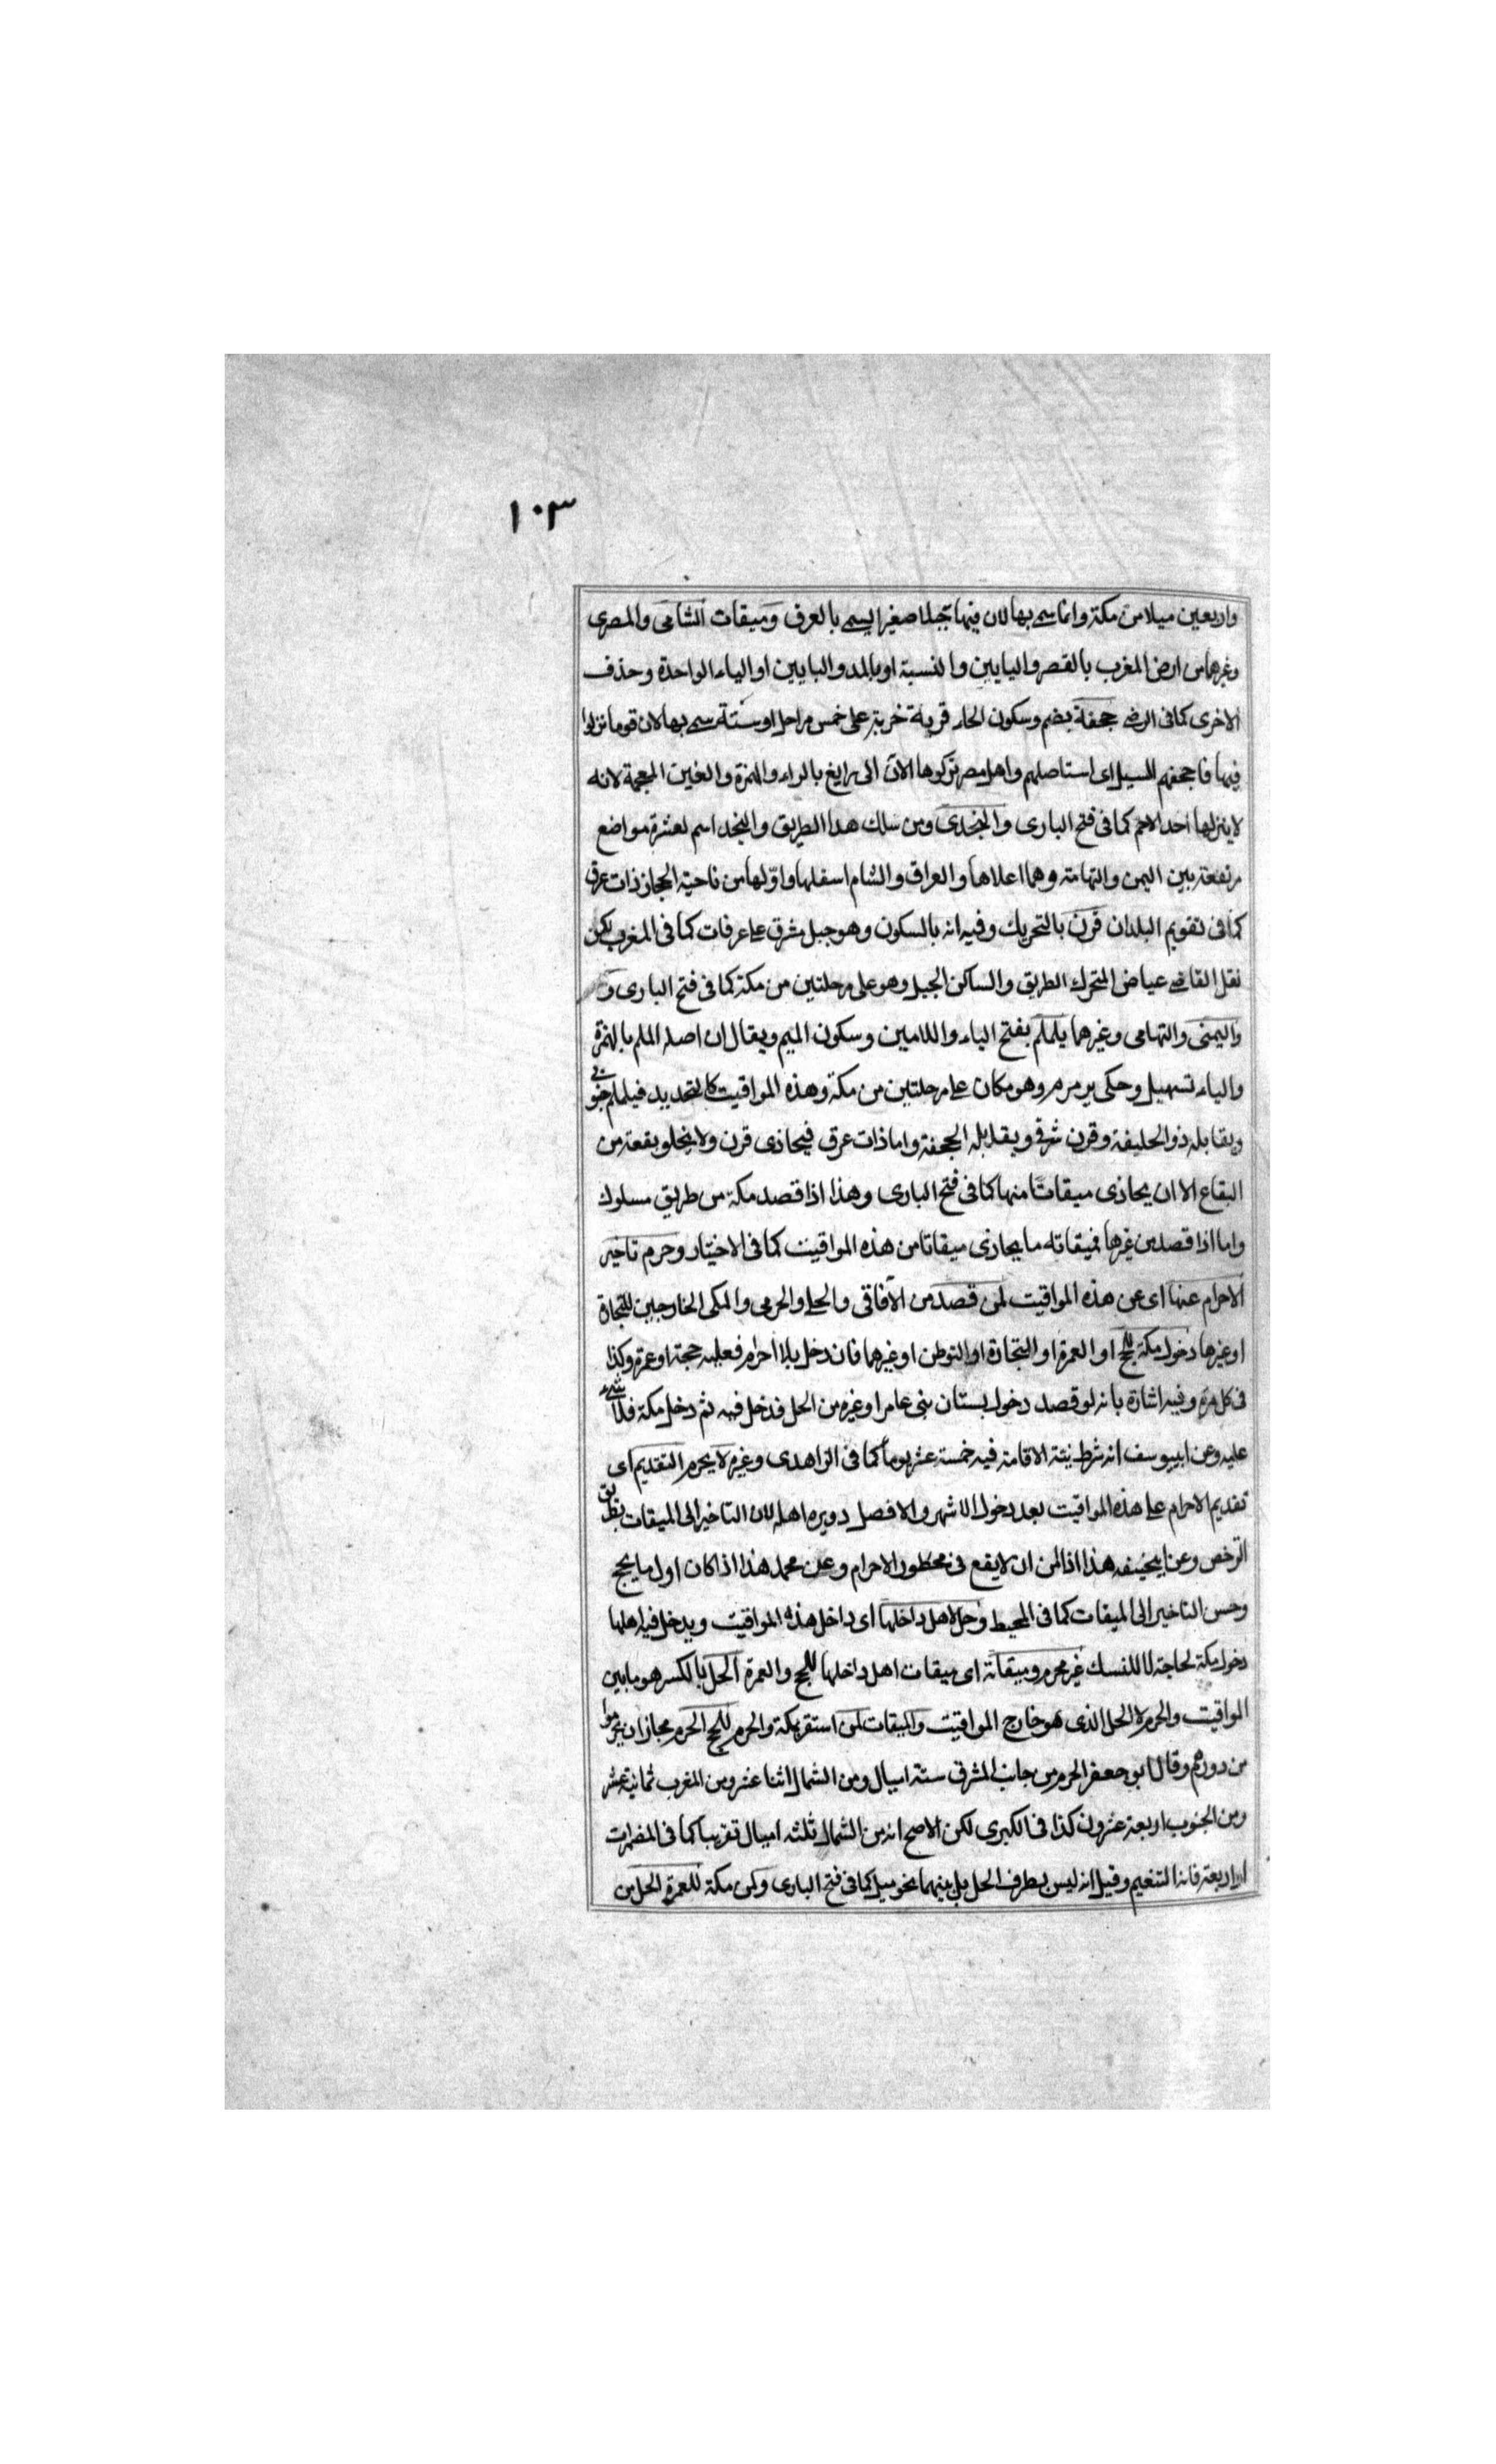 ١٠٣
واربعين ميلا من مكة وانما سمى بها لان فيها جبلا صغيرا يسمى بالعرق وميقات الشامى والمصرى
وغيرهما من ارض المغرب بالقصر واليايين والنسبة او بالمد والبايين او الياء الواحدة وحذف
الاخرى كما فى الرضى جحفة بضم وسكون الحاء قرية خربة على خمس مراحل او ستة سمى بها لان قوما نزلوا
فيها فاجحفهم السيل اى استاصلهم واهل مصر تركوها الآن الى رايغ بالراء والهمزة والغين المعجمة لانه
لا ينزلها احد الاحم كما فى فتح البارى والنجدى ومن سلك هذا الطريق والنجد اسم لعشرة مواضع
مرتفعة بين اليمن والتهامة وهما اعلاها والعراق والشام اسفلها واولها من ناحية الحجاز ذات عرق
كما فى تقويم البلدان قرن بالتحريك وفيه انه بالسكون وهو جبل مشرق على عرفات كما فى المغرب لكن
نقل القاضى عياض المتحرك الطريق والساكن الجبل وهو على مرحلتين من مكة كما فى فتح البارى و
واليمنى والتهامى وغيرهما يلملم بفتح الياء واللامين وسكون الميم ويقال ان اصله الملم بالهمزة
والياء تسهيل وحكى يرمرم وهو مكان على مرحلتين من مكة وهذه المواقيت كالتحديد فيلملم جنوبى
ويقابله ذو الحليفة وقرن شرقى ويقابله الجحفة واما ذات عرق فيحاذى قرن ولا يخلو بقعة من
البقاع الا ان يحاذى ميقاتا منها كما فى فتح البارى وهذا اذا قصد مكة من طريق مسلوك
واما اذا قصد من غيرها فميقاته ما يحاذى ميقاتا من هذه المواقيت كما فى الاختيار وحرم تاخير
الاحرام عنها اى عن هذه المواقيت لمن قصد من الآفاقى والحلى والحرمى والمكى الخارجين للتجارة
او غيرها دخول مكة للحج او العمرة او التجارة او التوطن او غيرهما فان دخل بلا احرام فعليه حجة او عمرة وكذا
فى كل مرة وفيه اشارة بانه لو قصد دخول بستان بنى عامر او غيره من الحل فدخل فيه ثم دخل مكة فلا شىء
عليه وعن ابيوسف انه شرط نية الاقامة فيه خمسة عشر يوما كما فى الزاهدى وغيره لا يحرم التقديم اى
تقديم الاحرام على هذه المواقيت بعد دخول الاشهر والافصل دويره اهله لان التاخير الى الميقات بطريق
الترخص وعن ابيحنيفه هذا اذا امن ان لا يقع فى محظور الاحرام وعن محمد هذا اذا كان اول ما يحج
وحسن التاخير الى الميقات كما فى المحيط وحل لاهل داخلها اى داخل هذه المواقيت ويدخل فيه اهلها
دخول مكة لحاجة لا للنسك غير محرم وميقاته اى ميقات اهل داخلها للحج والعمرة الحل بالكسر هو ما بين
المواقيت والحرم لا الحل الذى هو خارج المواقيت والميقات لمن استقر بمكة والحرم للحج الحرم مجاز ان يحرموا
من دورهم وقال ابو جعفر الحرم من جانب المشرق ستة اميال ومن الشمال اثنا عشر ومن المغرب ثمانية عشر
ومن الجنوب اربعة عشرون كذا فى الكبرى لكن الاصح انه من الشمال ثلثه اميال تقريبا كما فى المضمرات
او اربعة فانه التنغيم وقيل انه ليس بطرف الحل بل بينهما نحو ميل كما فى فتح البارى وكمن مكة للعمرة الحل من